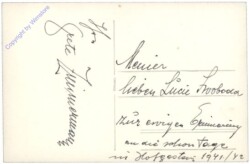 Meiner
lieben Lucie Swoboda
zur ewigen Erinnerung
an die schönen Tage
in Hofgastein 1941/42
Ihre
Grete Zimmermann